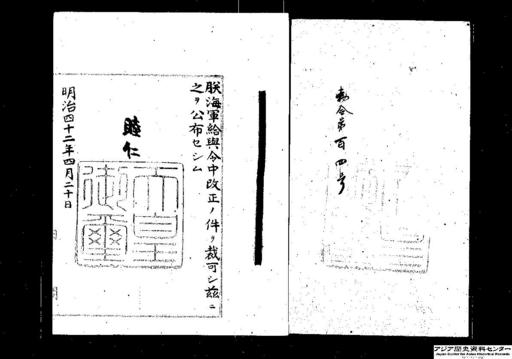 勅令第百四号
朕海軍給與令中改正ノ件ヲ裁可シ茲ニ
之ヲ公布セシム
睦仁
天皇御璽
明治四十二年四月二十日
アジア歴史資料センター
Japan Center for Asian Historical Records